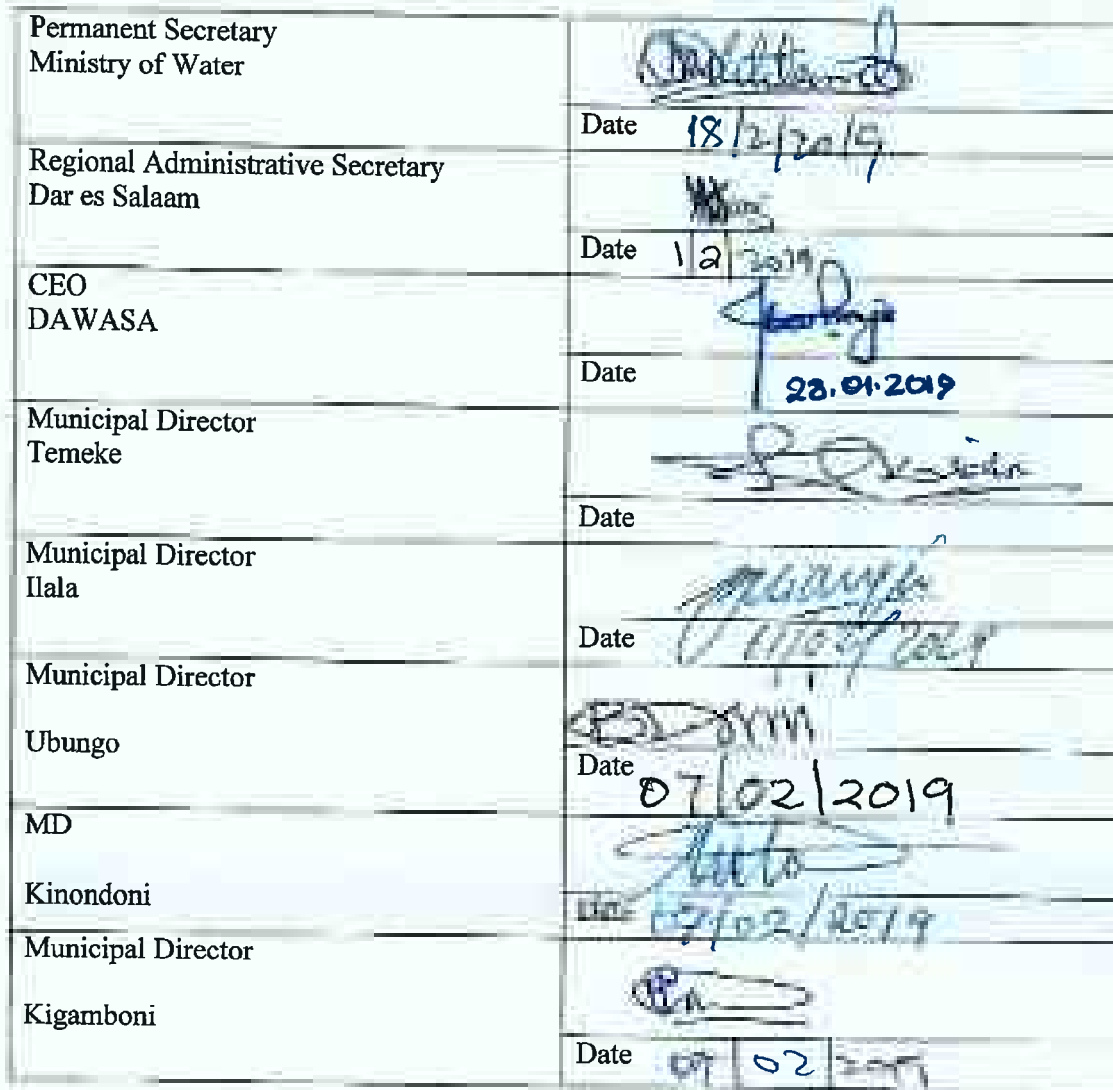 Permanent Secretary
Ministry of Water
Date 18/2/2019
Regional Administrative Secretary
Dar es Salaam
Date 1/2/2019
CEO
DAWASA
Date 28.01.2019
Municipal Director
Temeke
Date
Municipal Director
Ilala
Date
Municipal Director
Ubungo
Date 07/02/2019
MD
Kinondoni
Date 07/02/2019
Municipal Director
Kigamboni
Date 02